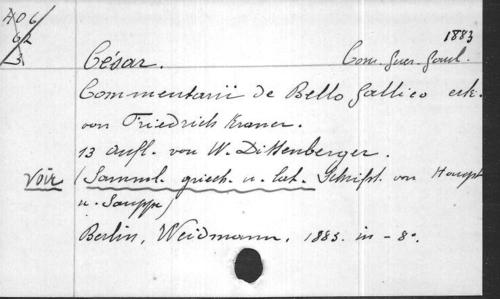 406
62
3
1883
César. Com. Guer. Gaul.
Commentarii de Bello Gallico erk.
von Friedrich Kraner.
13 Aufl. von W. Dittenberger.
Voir (Samml. griech. u. lat. Schrift. von Haupt
u. Sauppe)
Berlin, Weidmann, 1883. in-8º.